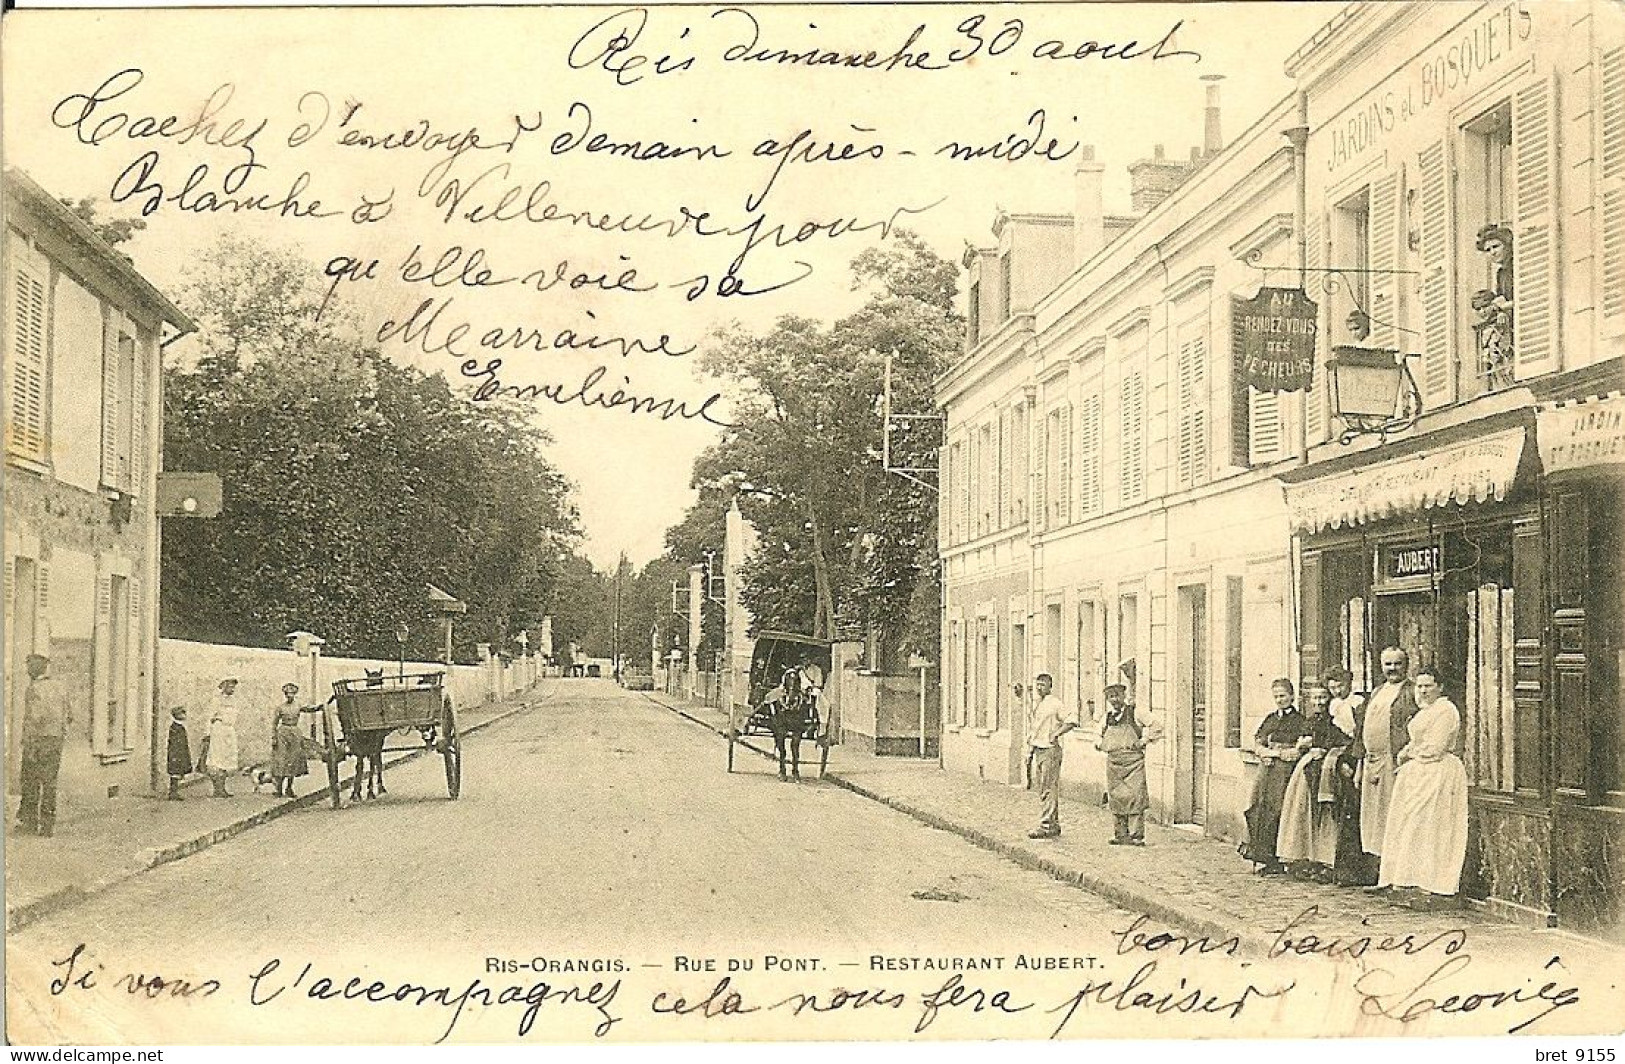 Ris dimanche 30 aout
Tachez d'envoyer demain après-midi
Blanche à Villeneuve pour
qu'elle voie sa
Marraine
Emelienne
JARDINS et BOSQUETS
AU
RENDEZ-VOUS
DES
PÊCHEURS
JARDIN
ET BOSQUET
RESTAURANT
AUBERT
RIS-ORANGIS. — RUE DU PONT. — RESTAURANT AUBERT.
bons baisers
Si vous l'accompagnez cela nous fera plaisir Léonie
bret 9155